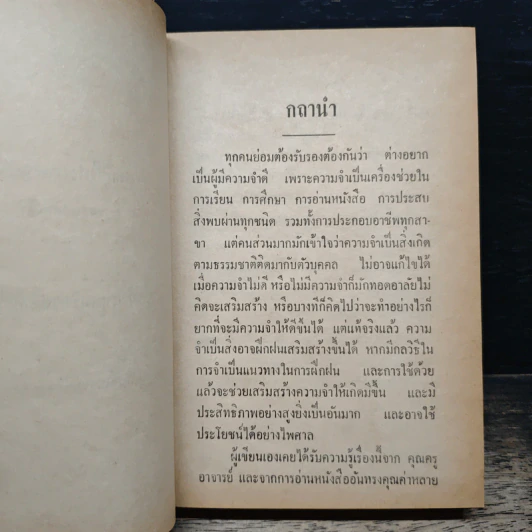 กถานำ
ทุกคนย่อมต้องรับรองต้องกันว่า ต่างอยาก
เป็นผู้มีความจำดี เพราะความจำเป็นเครื่องช่วยใน
การเรียน การศึกษา การอ่านหนังสือ การประสบ
สิ่งพบผ่านทุกชนิด รวมทั้งการประกอบอาชีพทุกสา-
ขา แต่คนส่วนมากมักเข้าใจว่าความจำเป็นสิ่งเกิด
ตามธรรมชาติติดมากับตัวบุคคล ไม่อาจแก้ไขได้
เมื่อความจำไม่ดี หรือไม่มีความจำก็มักทอดอาลัยไม่
คิดจะเสริมสร้าง หรือบางทีก็คิดไปว่าจะทำอย่างไรก็
ยากที่จะมีความจำให้ดีขึ้นได้ แต่แท้จริงแล้ว ความ
จำเป็นสิ่งอาจฝึกฝนเสริมสร้างขึ้นได้ หากมีกลวิธีใน
การจำเป็นแนวทางในการฝึกฝน และการใช้ด้วย
แล้วจะช่วยเสริมสร้างความจำให้เกิดมีขึ้น และมี
ประสิทธิภาพอย่างสูงยิ่งเป็นอันมาก และอาจใช้
ประโยชน์ได้อย่างไพศาล
ผู้เขียนเองเคยได้รับความรู้เรื่องนี้จาก คุณครู
อาจารย์ และจากการอ่านหนังสืออันทรงคุณค่าหลาย